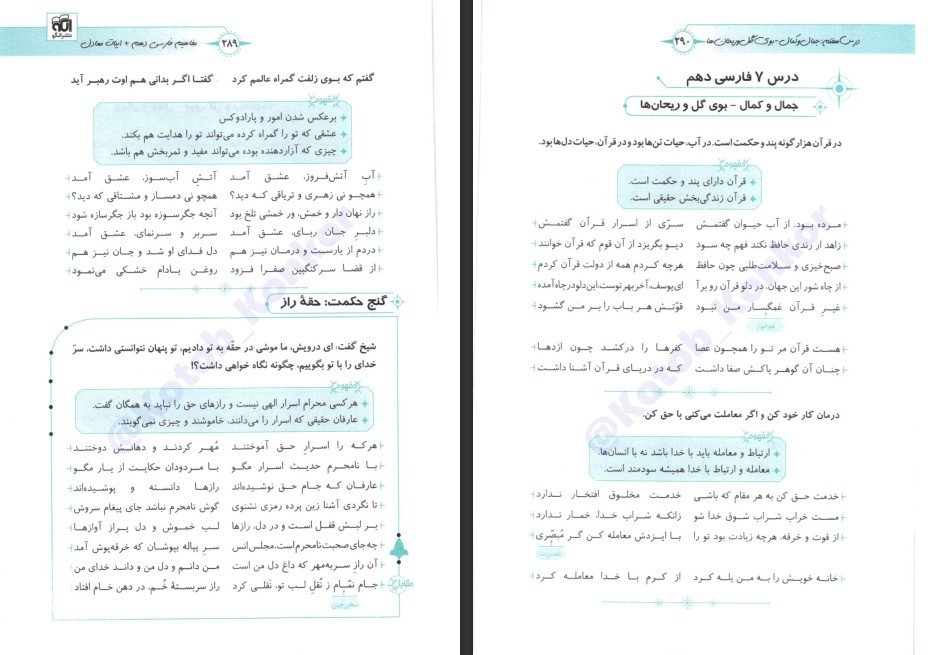 مفاهیم فارسی دهم + ابیات معادل
۲۸۹
نشر الگو
گفتم که بوی زلفت گمراه عالمم کرد گفتا اگر بدانی هم اوت رهبر آید
مفهوم
برعکس شدن امور و پارادوکس
عشقی که تو را گمراه کرده می‌تواند تو را هدایت هم بکند.
چیزی که آزاردهنده بوده می‌تواند مفید و ثمربخش هم باشد.
آبِ آتش‌فروز، عشق آمد آتشِ آب‌سوز، عشق آمد
همچو نی زهری و تریاقی که دید؟ همچو نی دمساز و مشتاقی که دید؟
راز نهان دار و خمش، ور خمشی تلخ بود آنچه جگرسوزه بود باز جگرسازه شود
دلبر جان ربای، عشق آمد سربر و سرنمای، عشق آمد
دردم از یارست و درمان نیز هم دل فدای او شد و جان نیز هم
از قضا سرکنگبین صفرا فزود روغن بادام خشکی می‌نمود
گنج حکمت: حقهٔ راز
شیخ گفت: ای درویش، ما موشی در حقّه به تو دادیم، تو پنهان نتوانستی داشت، سرّ
خدای را با تو بگوییم، چگونه نگاه خواهی داشت؟!
مفهوم
هر کسی محرام اسرار الهی نیست و رازهای حق را نباید به همگان گفت.
عارفان حقیقی که اسرار را می‌دانند، خاموشند و چیزی نمی‌گویند.
هرکه را اسرارِ حق آموختند مُهر کردند و دهانش دوختند
با نامحرم حدیث اسرار مگو با مردودان حکایت از یار مگو
عارفان که جام حق نوشیده‌اند رازها دانسته و پوشیده‌اند
تا نگردی آشنا زین پرده رمزی نشنوی گوش نامحرم نباشد جای پیغام سروش
بر لبش قفل است و در دل، رازها لب خموش و دل پر از آوازها
چه جای صحبت نامحرم است، مجلس انس سر پیاله بپوشان که خرقه‌پوش آمد
آن راز سربه‌مهر که داغ دل من است من دانم و دل من و داند خدای من
جام نمّام ز نُقلِ لب تو، نَقلی کرد راز سربستهٔ خُم، در دهن خام افتاد
سخن‌چین
مقابل
درس هفتم: جمال و کمال - بوی گل و ریحان‌ها
۲۹۰
درس ۷ فارسی دهم
جمال و کمال - بوی گل و ریحان‌ها
در قرآن هزار گونه پند و حکمت است. در آب، حیات تن‌ها بود و در قرآن، حیات دل‌ها بود.
مفهوم
قرآن دارای پند و حکمت است.
قرآن زندگی‌بخش حقیقی است.
مرده بود. از آب حیوان گفتمش سرّی از اسرار قرآن گفتمش
زاهد ار رندی حافظ نکند فهم چه سود دیو بگریزد از آن قوم که قرآن خوانند
صبح‌خیزی و سلامت‌طلبی چون حافظ هرچه کردم همه از دولت قرآن کردم
از چاه شور این جهان، در دلو قرآن رو برآ ای یوسف، آخر بهر توست، این دلو در چاه آمده
غیرِ قرآن غمگسارِ من نبود قوّتش هر باب را بر من گشود
غم‌خوار
هست قرآن مر تو را همچون عصا کفرها را درکشد چون اژدها
چنان آن گوهر پاکش صفا داشت که در دریای قرآن آشنا داشت
درمان کار خود کن و اگر معاملت می‌کنی با حق کن.
مفهوم
ارتباط و معامله باید با خدا باشد نه با انسان‌ها.
معامله و ارتباط با خدا همیشه سودمند است.
خدمت حق کن به هر مقام که باشی خدمت مخلوق افتخار ندارد
مست خراب شراب شوق خدا شو زانکه شراب خدا، خمار ندارد
از قوت و خرقه، هرچه زیادت بود تو را با ایزدش معامله کن گر مُبصّری
بابصیرت
خانه خویش را به من یله کرد از کرم با خدا معامله کرد
@Kotob_Konkor
@Kotob_Konkor